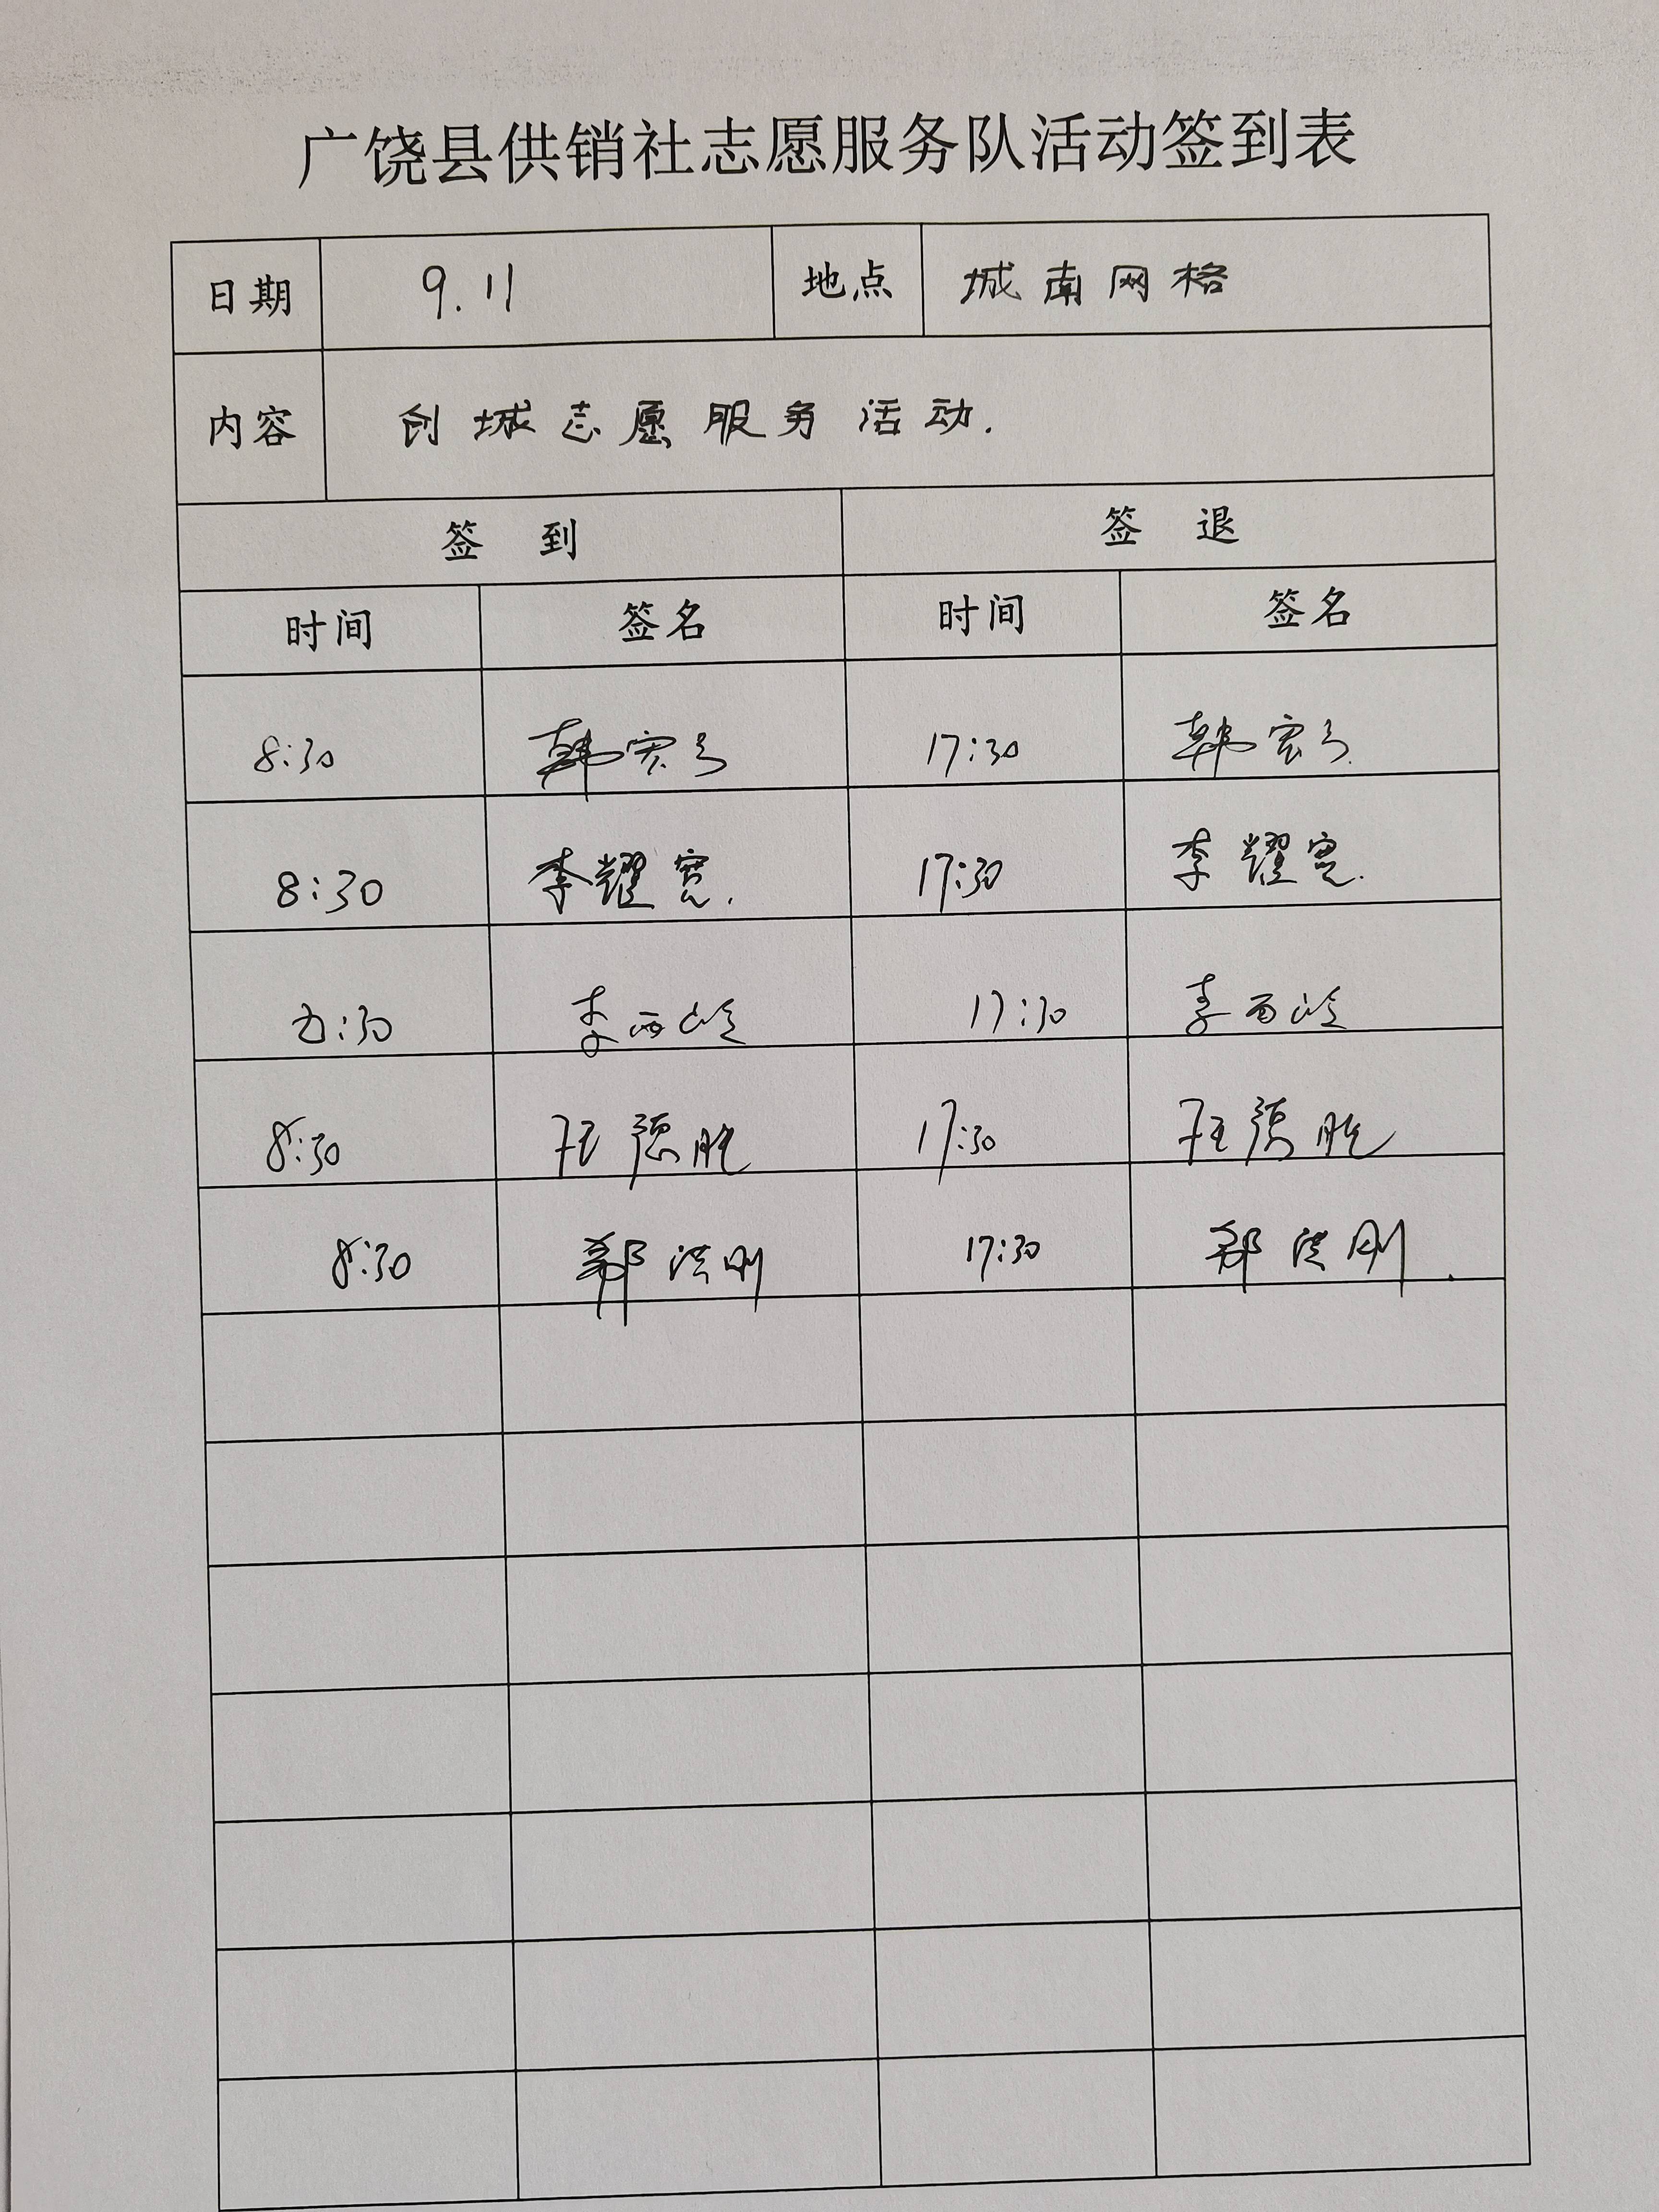 广饶县供销社志愿服务队活动签到表
日期 9.11 地点 城南网格
内容 创城志愿服务活动.
签 到 签 退
时间 签名 时间 签名
8:30 韩宏 17:30 韩宏
8:30 李耀宽. 17:30 李耀宽.
8:30 李西岭 17:30 李西岭
8:30 王德胜 17:30 王德胜
8:30 郝洪刚 17:30 郝洪刚.